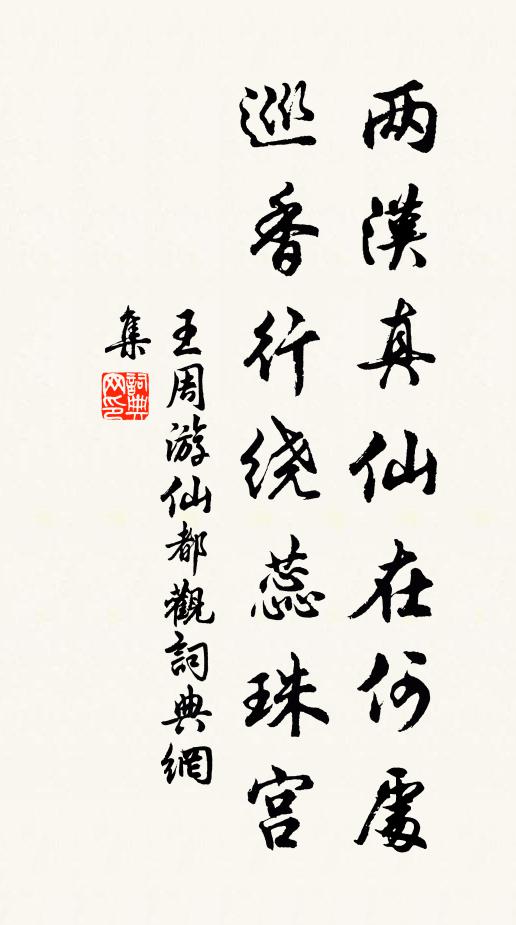 两漢真仙在何處
巡香行绕蕊珠宫
王周游仙都觀詞典網
集
詞典網印